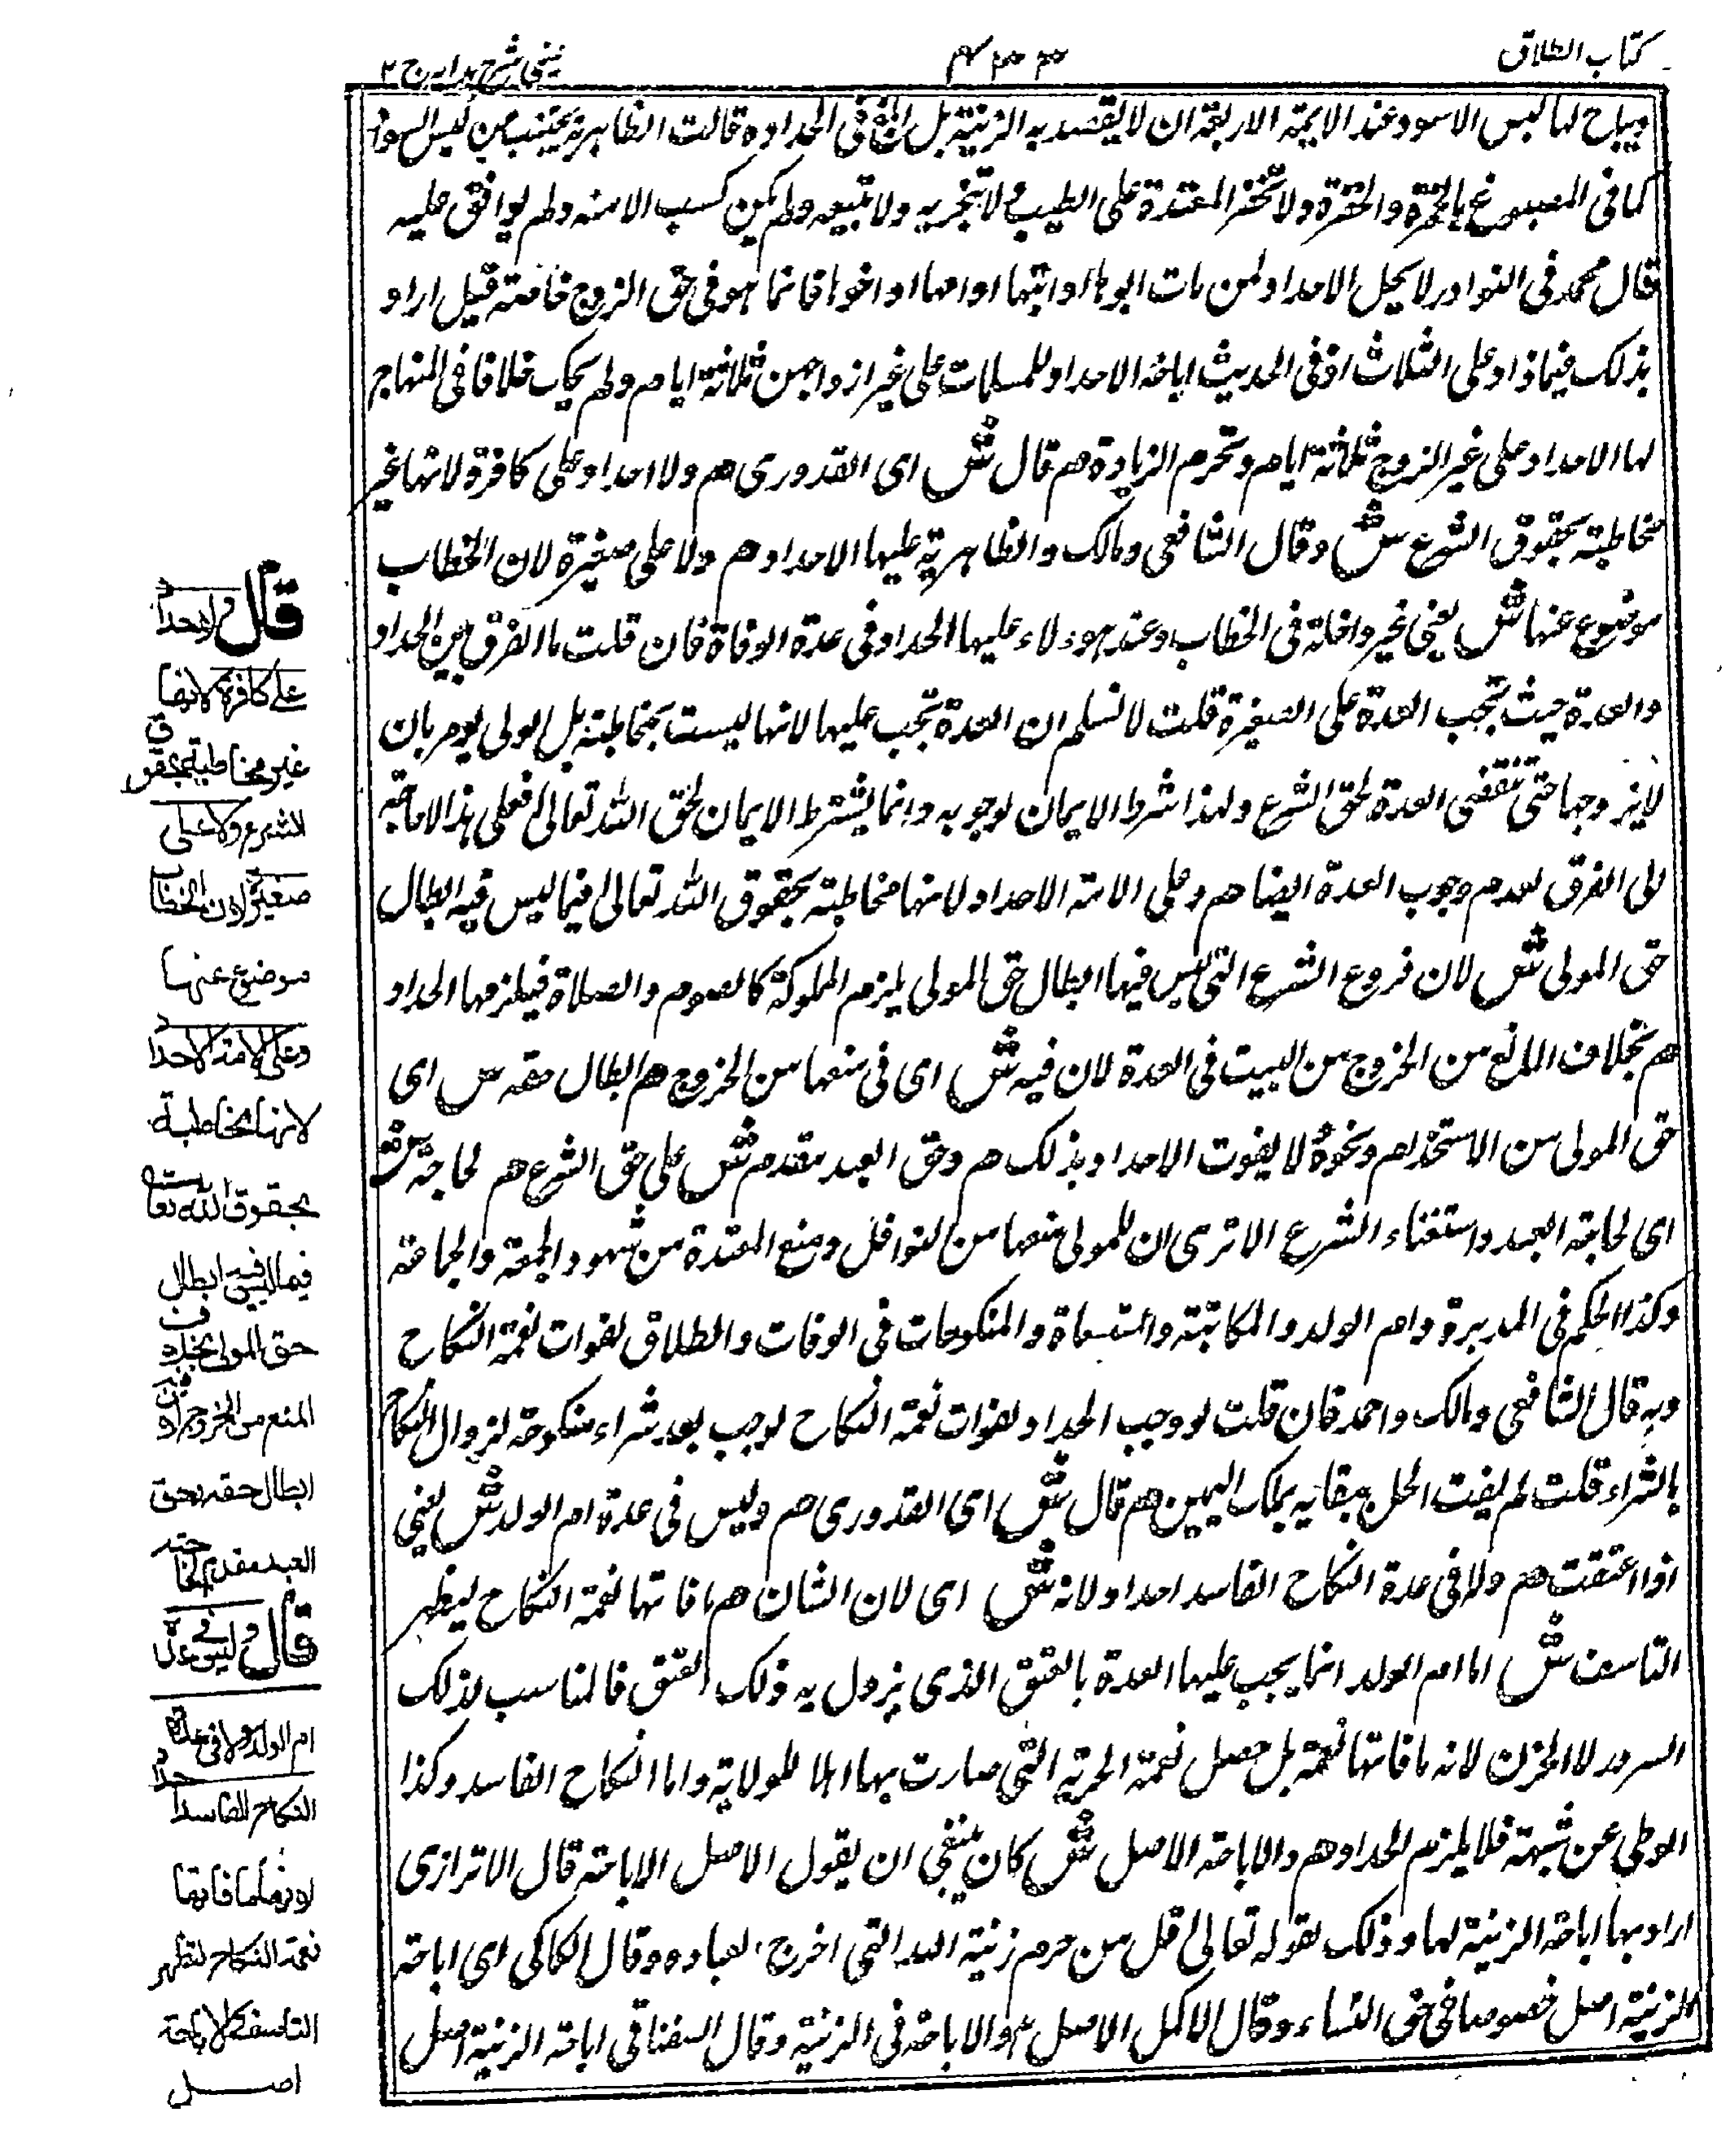 كتاب الطلاق
عينى شرح هدايه ج ٢
ويباح لها لبس الاسود عند الايمة الاربعة ان لا يقصد به الزينة بل فى الحداد وقالت الظاهرية تجتنب عن لبس السواد
كما فى المصبوغ بالحمرة والخضرة ولا تحضر المعتدة على الطيب ولا تتجر به ولا تبيعه ولم يكن كسب الا منه ولم يوافق عليه
قال محمد فى النوادر لا يحل الاحداد لمن مات ابوها او ابنها او امها او اخوها فانما هو فى حق الزوج خاصة قيل اراد
بذلك فيما زاد على الثلاث اذ فى الحديث اباحة الاحداد للمسلمات على غير ازواجهن ثلاثة ايام ولم يحك خلافا فى المنهاج
لها الاحداد على غير الزوج ثلاثة ايام وتحرم الزيادة هم قال ش اى القدورى هم ولا احداد على كافرة لانها غير
مخاطبة بحقوق الشرع ش وقال الشافعى ومالك والظاهرية عليها الاحداد هم ولا على صغيرة لان الخطاب
موضوع عنها ش يعنى غير داخلة فى الخطاب وعند هوءلاء عليها الحداد فى عدة الوفاة فان قلت ما الفرق بين الحداد
والعدة حيث تجب العدة على الصغيرة قلت لا نسلم ان العدة تجب عليها لانها ليست بمخاطبة بل الولى يومر بان
لا يزوجها حتى تنقضى العدة لحق الشرع ولهذا شرط الايمان لوجوبه وانما يشترط الايمان لحق الله تعالى فعلى هذا لا حاجة
الى الفرق لعدم وجوب العدة ايضا هم وعلى الامة الاحداد لانها مخاطبة بحقوق الله تعالى فيما ليس فيه ابطال
حق المولى ش لان فروع الشرع التى ليس فيها ابطال حق المولى يلزم المملوكة كالصوم والصلاة فيلزمها الحداد
هم بخلاف المانع من الخروج من البيت فى العدة لان فيه ش اى فى منعها من الخروج هم ابطال حقه ش اى
حق المولى من الاستخدام ونحوه لا يفوت الاحداد بذلك هم وحق العبد مقدم ش على حق الشرع هم لحاجته ش
اى لحاجة العبد واستغناء الشرع الا ترى ان للمولى منعها من النوافل ومنع المعتدة من شهود الجمعة والجماعة
وكذا الحكم فى المدبرة وام الولد والمكاتبة والمستسعاة والمنكوحات فى الوفات والطلاق لفوات نعمة النكاح
وبه قال الشافعى ومالك واحمد فان قلت لو وجب الحداد لفوات نعمة النكاح لوجب بعد شراء منكوحة لزوال النكاح
بالشراء قلت لم يفت الحل بقايه بملك اليمين هم قال ش اى القدورى هم وليس فى عدة ام الولد ش يعنى
اذا اعتقت هم ولا فى عدة النكاح الفاسد احداد لانه ش اى لان الشان هم ما فاتها نعمة النكاح ليظهر
التاسف ش اما ام الولد انما يجب عليها العدة بالعتق الذى يزول به ذلك العتق فالمناسب لذلك
السرور لا الحزن لانه ما فاتها نعمة بل حصل نعمة الحرية التى صارت بها اهلا للولاية واما النكاح الفاسد وكذا
الوطى عن شبهة فلا يلزم الحداد هم والاباحة الاصل ش كان ينبغى ان يقول الاصل الاباحة قال الاترازى
اراد بها اباحة الزينة لها وذلك لقوله تعالى قل من حرم زينة الله التى اخرج لعباده وقال الكاكى اى اباحة
الزينة اصل خصوصا فى حق النساء وقال الاكمل الاصل هو الاباحة فى الزينة وقال السغناقى اباحة الزينة اصل
قال ولا احداد
على كافرة لانها
غير مخاطبة بحقوق
الشرع ولا على
صغيرة لان الخطاب
موضوع عنها
وعلى الامة الاحداد
لانها مخاطبة
بحقوق الله تعالى
فيما ليس فيه ابطال
حق المولى بخلاف
المنع من الخروج لان فيه
ابطال حقه وحق
العبد مقدم لحاجته
قال وليس فى عدة
ام الولد ولا فى عدة
النكاح الفاسد احداد
لانها ما فاتها
نعمة النكاح لتظهر
التاسف والاباحة
اصل